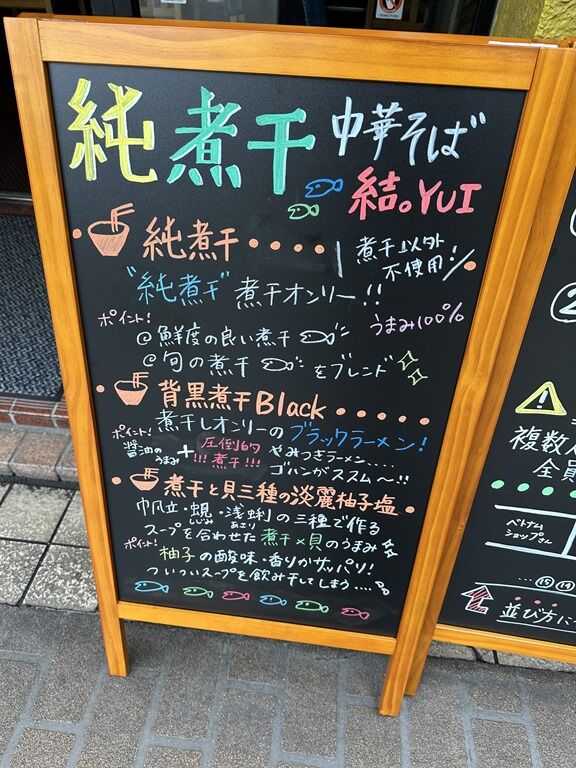 純煮干 中華そば
結。YUI
純煮干・・・・
煮干以外
不使用!
"純煮干"煮干オンリー!!
ポイント!
うまみ100%
@鮮度の良い煮干
@旬の煮干 をブレンド
背黒煮干Black・・・・・
煮干しオンリーのブラックラーメン!
ポイント!
醤油の
うまみ
+
圧倒的
!!!煮干!!!
やみつきラーメン....
ゴハンがススム〜!!
煮干と貝三種の淡麗柚子塩
帆立・蜆・浅蜊の三種で作る
しじみ
あさり
スープを合わせた煮干×貝のうまみ
ポイント!
柚子の酸味・香りがサッパリ!
ついついスープを飲み干してしまう....
②
複数人
全員
ベトナム
ショップさん
...⑮⑭
並び方に